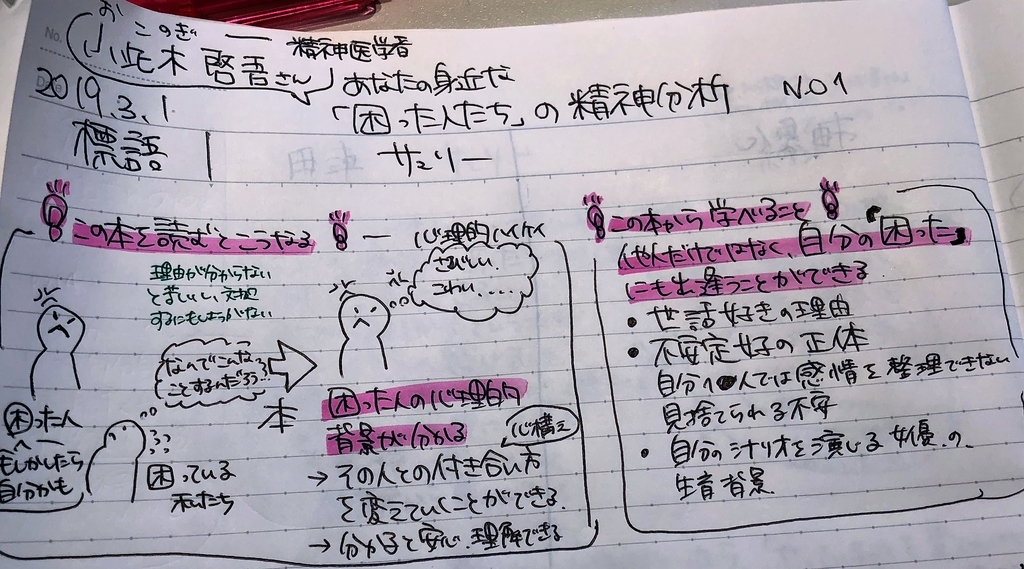 お このぎ
小此木 啓吾さん
精神医学者
2019.3.1
あなたの身近な
「困った人たち」の精神分析 NO1
標語
サマリー
この本を読むとこうなる
理由が分からない
と苦しいし、対処
するにもしようがない
なんでこんな
ことするんだろう…?
本
困った人
もしかしたら
自分かも
困っている
私たち
心理的ハイケイ
さびしい
こわい....
困った人の心理的
背景が分かる
心構え
→ その人との付き合い方
を変えていくことができる.
→ 分かると安心.理解できる
この本から学べること
他人だけではなく、自分の「困った」
にも出逢うことができる
・世話好きの理由
・不安定好の正体
自分1人では感情を整理できない
見捨てられる不安
・自分のシナリオを演じる女優.の
生育背景